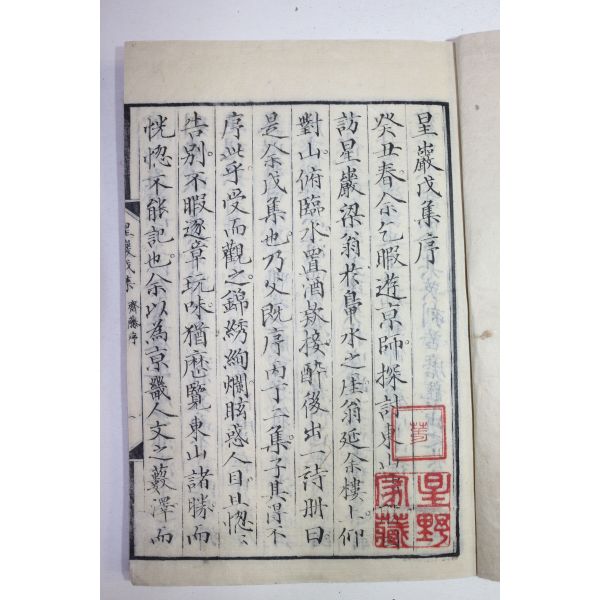 星巖戊集序
癸丑春余乞暇遊京師探討東山
訪星巖梁翁於鼻水之厓翁延余樓上仰
對山俯臨水置酒欵接酔後出一詩册曰
是余戊集也乃父既序丙丁二集子其得不
序此乎受而觀之錦綉絢爛眩惑人目且怱〻
告別不暇逐章玩味猶歴覽東山諸勝而
恍惚不能記也余以為京畿人文之藪澤而
星巖戊集 齋藤序
星野
家藏